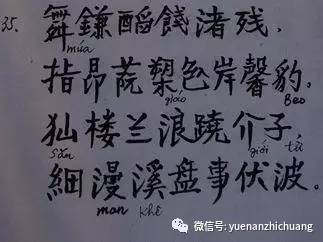 35. 舞鎌醄餞渚残.
múa
指昂槊色岸馨豹,
giáo Beo
楼兰浪蹺介子,
săn giới tử
細漫溪盘事伏波。
man khê
微信号: yuenanzhichuang